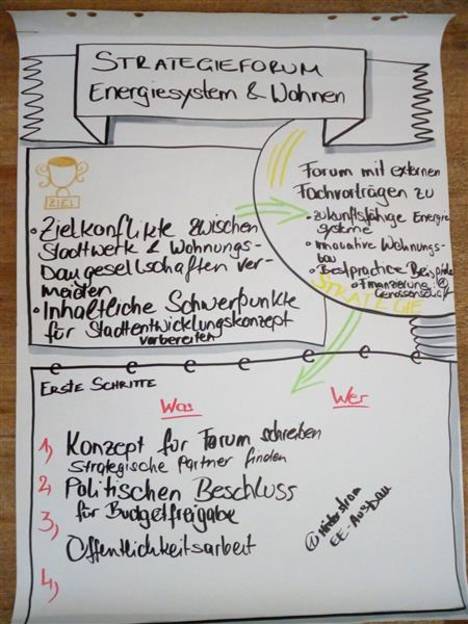 STRATEGIEFORUM
Energiesystem & Wohnen
ZIEL
• Zielkonflikte zwischen
Stadtwerk & Wohnungs-
baugesellschaften ver-
meiden
• Inhaltliche Schwerpunkte
für Stadtentwicklungskonzept
vorbereiten
Forum mit externen
Fachvorträgen zu
• zukunftsfähige Energie
systeme
• innovative Wohnungs-
bau
• Bestpractice Beispiele
• Finanzierung:
Genossenschaft
STRATEGIE
ERSTE SCHRITTE
Was
Wer
1) Konzept für Forum schreiben
Strategische Partner finden
2) Politischen Beschluss
für Budgetfreigabe
3)
Öffentlichkeitsarbeit
4)
EE-Ausbau